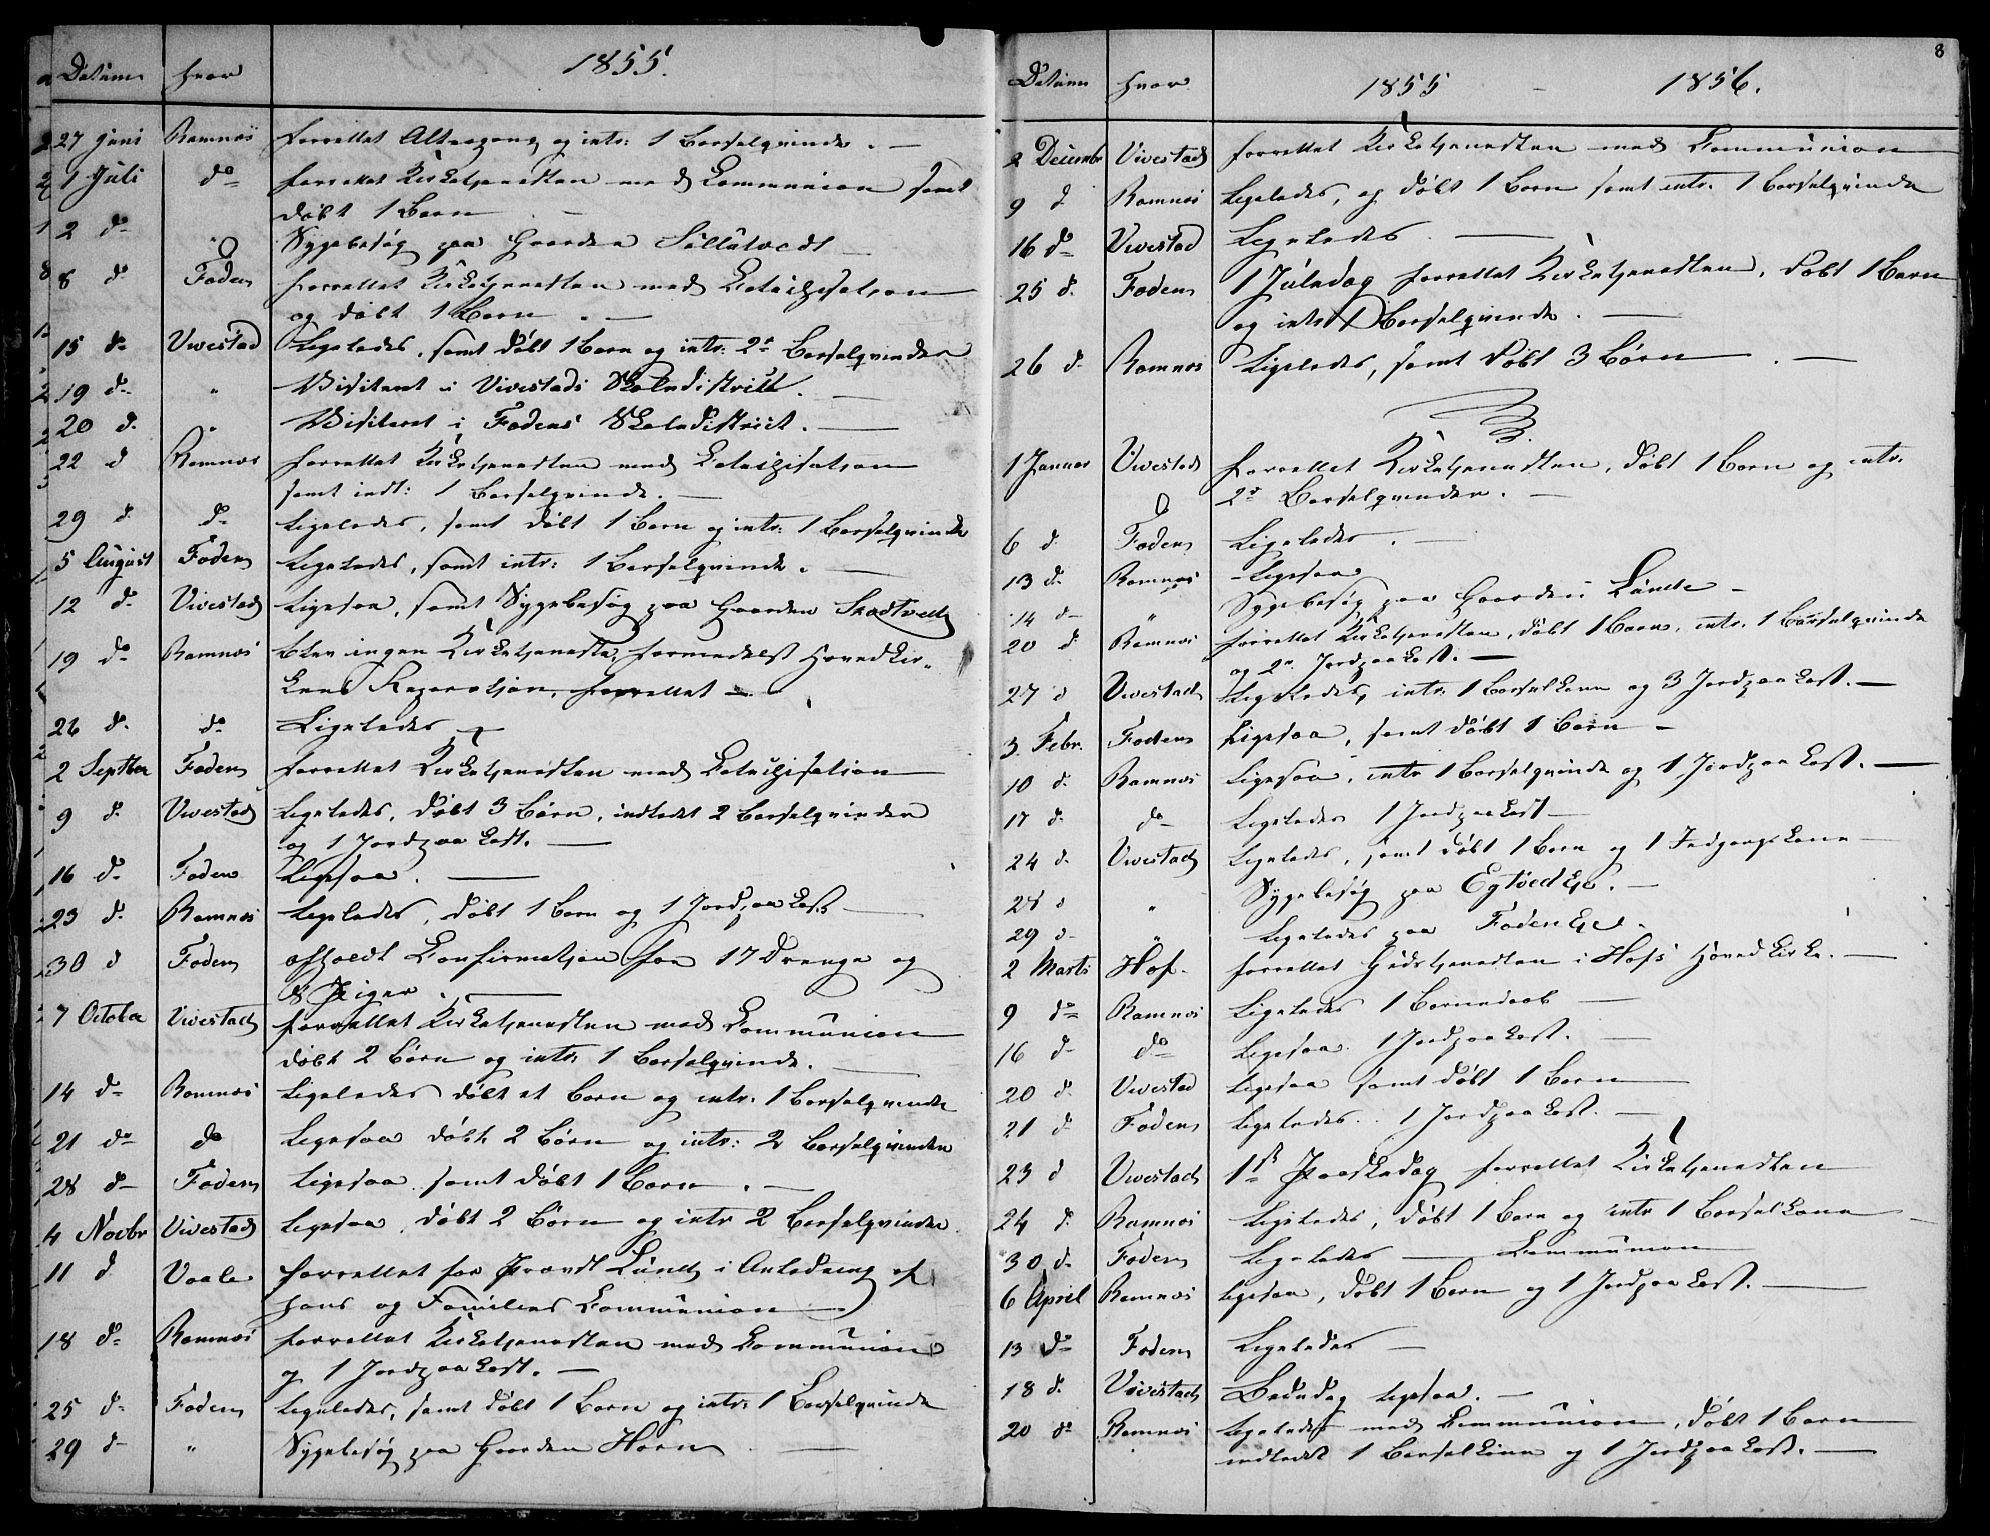 1855.
Datum hvor
27 Juni Ramnæs forrettet Altergang og intr: 1 Barselqvinde. —
1 Juli do forrettet Kirketjenesten med Communion samt
døbt 1 Barn —
2 do " Sygebesøg paa Gaarden Sullutvedt
8 do Fodens forrettet Kirketjenesten med Catechisation
og døbt 1 Barn. —
15 do Vivestad Ligeledes, samt døbt 1 Barn og intr: 2de Barselqvinder
19 do " Visiteret i Vivestads Skoledistrikt. —
20 d. " Visiteret i Fodens Skoledistrict. —
22 d Ramnæs forrettet Kirketjenesten med Catechisation
samt indl: 1 Barselqvinde. —
29 d. do Ligeledes, samt døbt 1 Barn og intr: 1 Barselqvinde
5 August Fodens Ligeledes, samt intr: 1 Barselqvinde. —
12 d. Vivestad Ligesaa, samt Sygebesøg paa Gaarden Skadtvedt
19 do Ramnæs blev ingen Kirketjeneste, formedelst Hovedkir-
kens Reparation, forrettet —
26 d. do Ligeledes —
2 Septber Fodens forrettet Kirketjenesten med Catechisation
9 d. Vivestad Ligeledes, døbt 3 Børn, indledet 2 Barselqvinder
og 1 Jordpaakast. —
16 do Fodens Ligesaa. —
23 d. Ramnæs Ligeledes, døbt 1 Barn og 1 Jordpaakast —
30 d Fodens afholdt Confirmation for 17 Drenge og
8 Piger. —
7 October Vivestad forrettet Kirketjenesten med Communion
døbt 2 Børn og intr: 1 Barselqvinde. —
14 do Ramnæs Ligeledes døbt et Barn og intr. 1 Barselqvinde
21 do do Ligesaa døbt 2 Børn og intr: 2 Barselqvinder
28 d- Fodens Ligesaa samt døbt 1 Barn. —
4 Novbr Vivestad Ligesaa, døbt 2 Børn og intr 2 Barselqvinder.
11 d Vaale forrettet for Provst Lund i Anledning af
hans og Families Communion
18 do Ramnæs forrettet Kirketjenesten med Communion
og 1 Jordpaakast. —
25 do Fodens Ligeledes, samt døbt 1 Barn og intr: 1 Barselqvinde
29 d- " Sygebesøg paa Gaarden Horn —
8
Datum hvor 1855 - 1856.
2 Decembr Vivestad forrettet Kirketjenesten med Communion
9 d Ramnæs Ligeledes, og døbt 1 Barn samt intr. 1 Barselqvinde
16 do Vivestad Ligeledes —
25 d. Fodens 1 Juledag forrettet Kirketjenesten, døbt 1 Barn
og intr 1 Barselqvinde. —
26 d. Ramnæs Ligeledes, samt døbt 3 Børn. —
1 Januar Vivestad forrettet Kirketjenesten, døbt 1 Barn og intr.
2de Barselqvinder. —
6 d. Fodens Ligeledes. —
13 d. Ramnæs Ligesaa
14 d- " Sygebesøg paa Gaarden Lunde —
20 d. Ramnæs forrettet Kirketjenesten, døbt 1 Barn, intr. 1 Barselqvinde
og 2de Jordpaakast. —
27 d Vivestad Ligeledes, intr. 1 Barselkone og 3 Jordpaakast. —
3 Febr. Fodens Ligesaa, samt døbt 1 Barn —
10 d. Ramnæs Ligesaa, intr 1 Barselqvinde og 1 Jordpaakast. —
17 d. do Ligeledes 1 Jordpaakast —
24 d. Vivestad Ligeledes, samt døbt 1 Barn og 1 Indgangskone —
28 d " Sygebesøg paa Egtvedt Eje. —
29 d- " Ligeledes paa Foden Eje.
2 Marts Hof- forrettet Gudstjenesten i Hofs Hovedkirke. —
9 do Ramnæs Ligeledes 1 Barnedaab —
16 d- do Ligesaa 1 Jordpaakast. —
20 d. Vivestad Ligesaa samt døbt 1 Barn —
21 d. Fodens Ligeledes. 1 Jordpaakast. —
23 d Vivestad 1ste Paaskedag forrettet Kirketjenesten
24 d. Ramnæs Ligeledes, døbt 1 Barn og intr 1 Barselkone —
30 d. Fodens Ligeledes — Communion
6 April Ramnæs Ligesaa, døbt 1 Barn og 1 Jordpaakast. —
13 do Fodens Ligeledes —
18 d. Vivestad Bededag ligesaa. —
20 do Ramnæs Ligeledes med Communion, døbt 1 Barn
indledet 1 Barselkone og 1 Jordpaakast. —